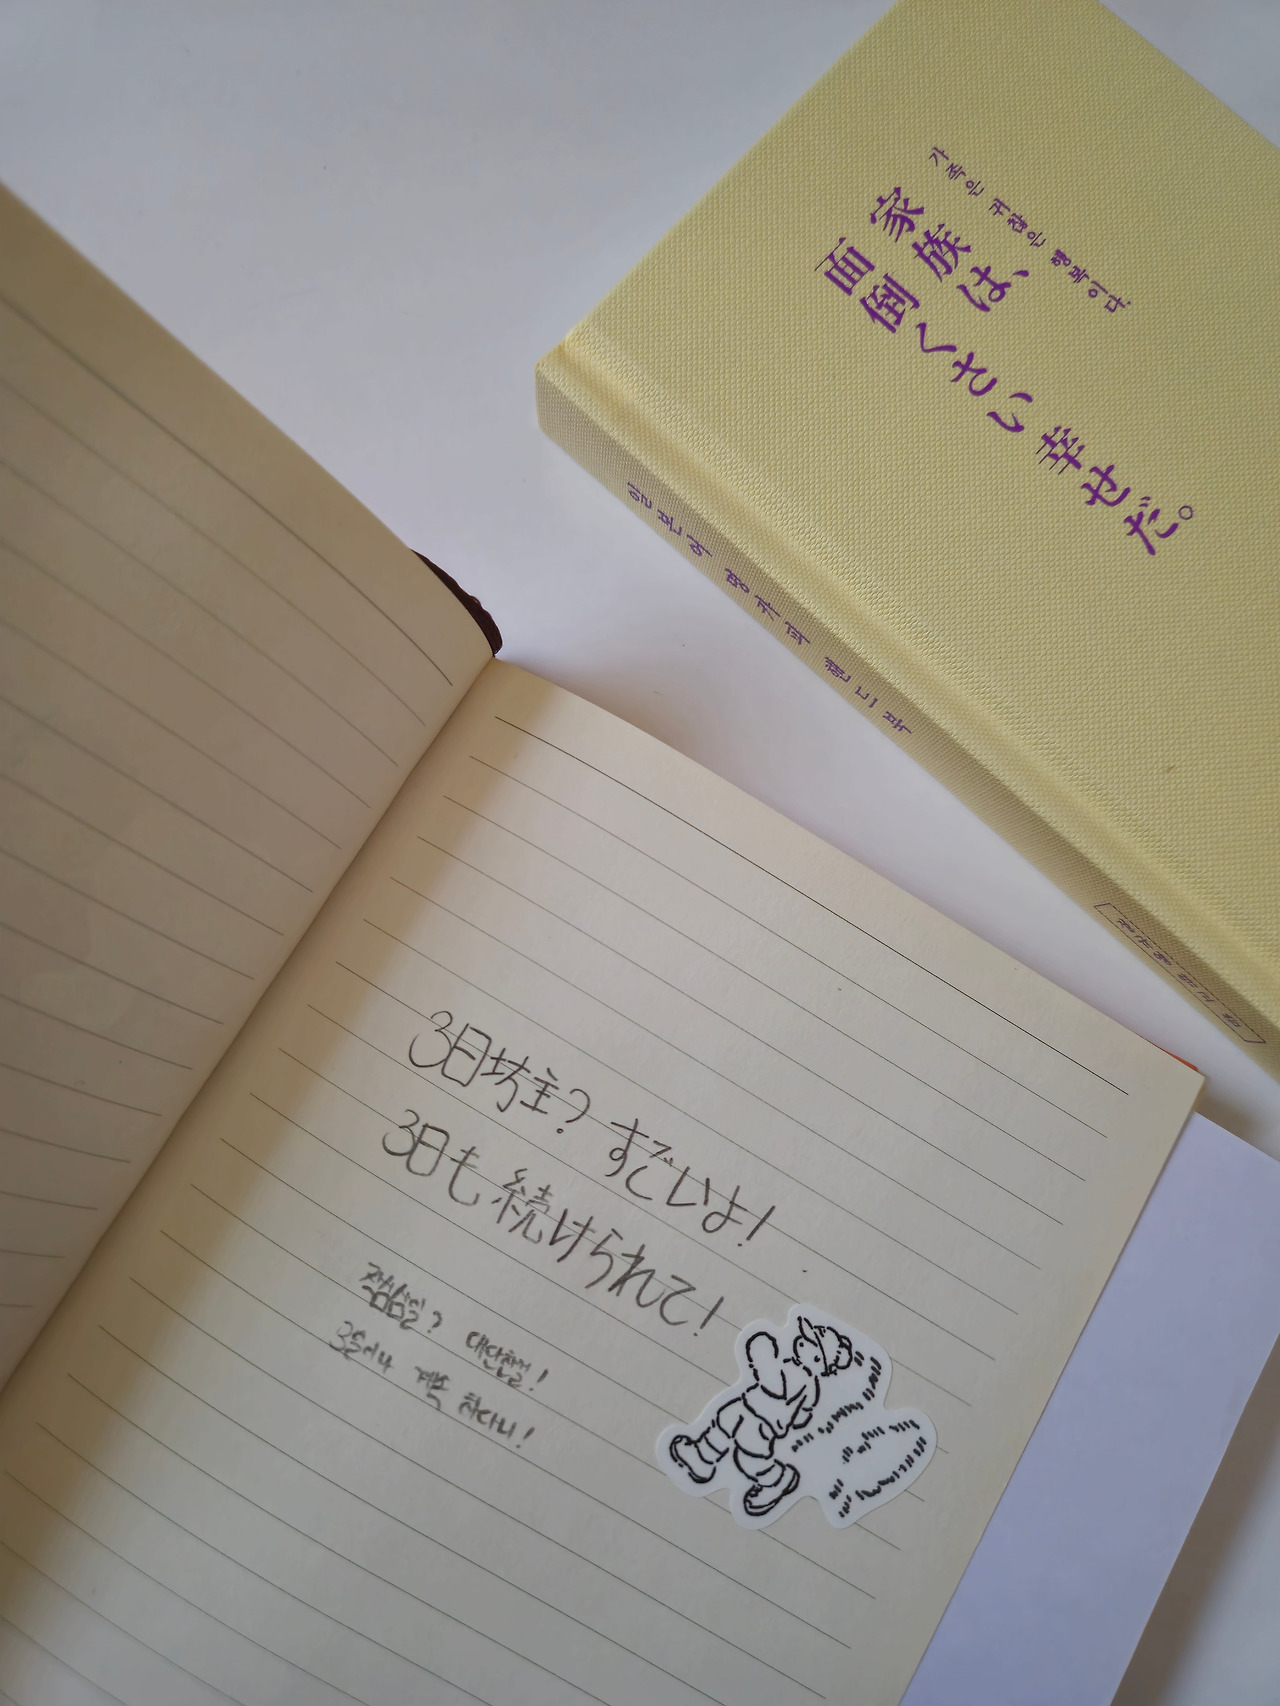 가족은 귀찮은 행복이다.
家族は、
面倒くさい幸せだ。
일본어 명카피 핸드북
3日坊主? すごいよ!
3日も続けられて!
작심삼일? 대단한걸!
3일이나 계속 하다니!